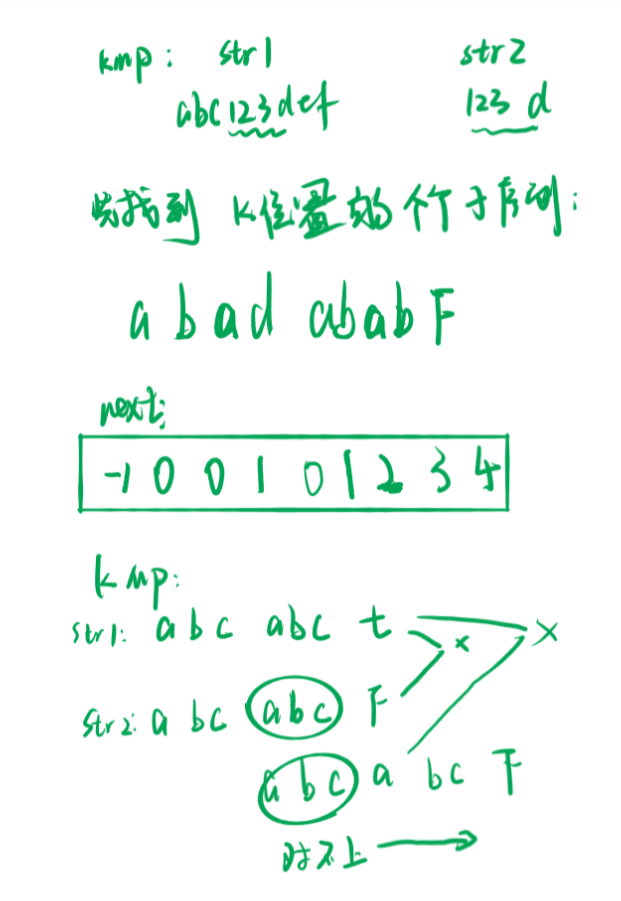 kmp: str1 str2
abc123def 123 d
找到 K位置的个子序列:
a b a d a b a b F
next:
-1 0 0 1 0 1 2 3 4
kmp:
str1: a b c a b c t × ×
str2: a b c a b c F
a b c a b c F
对不上